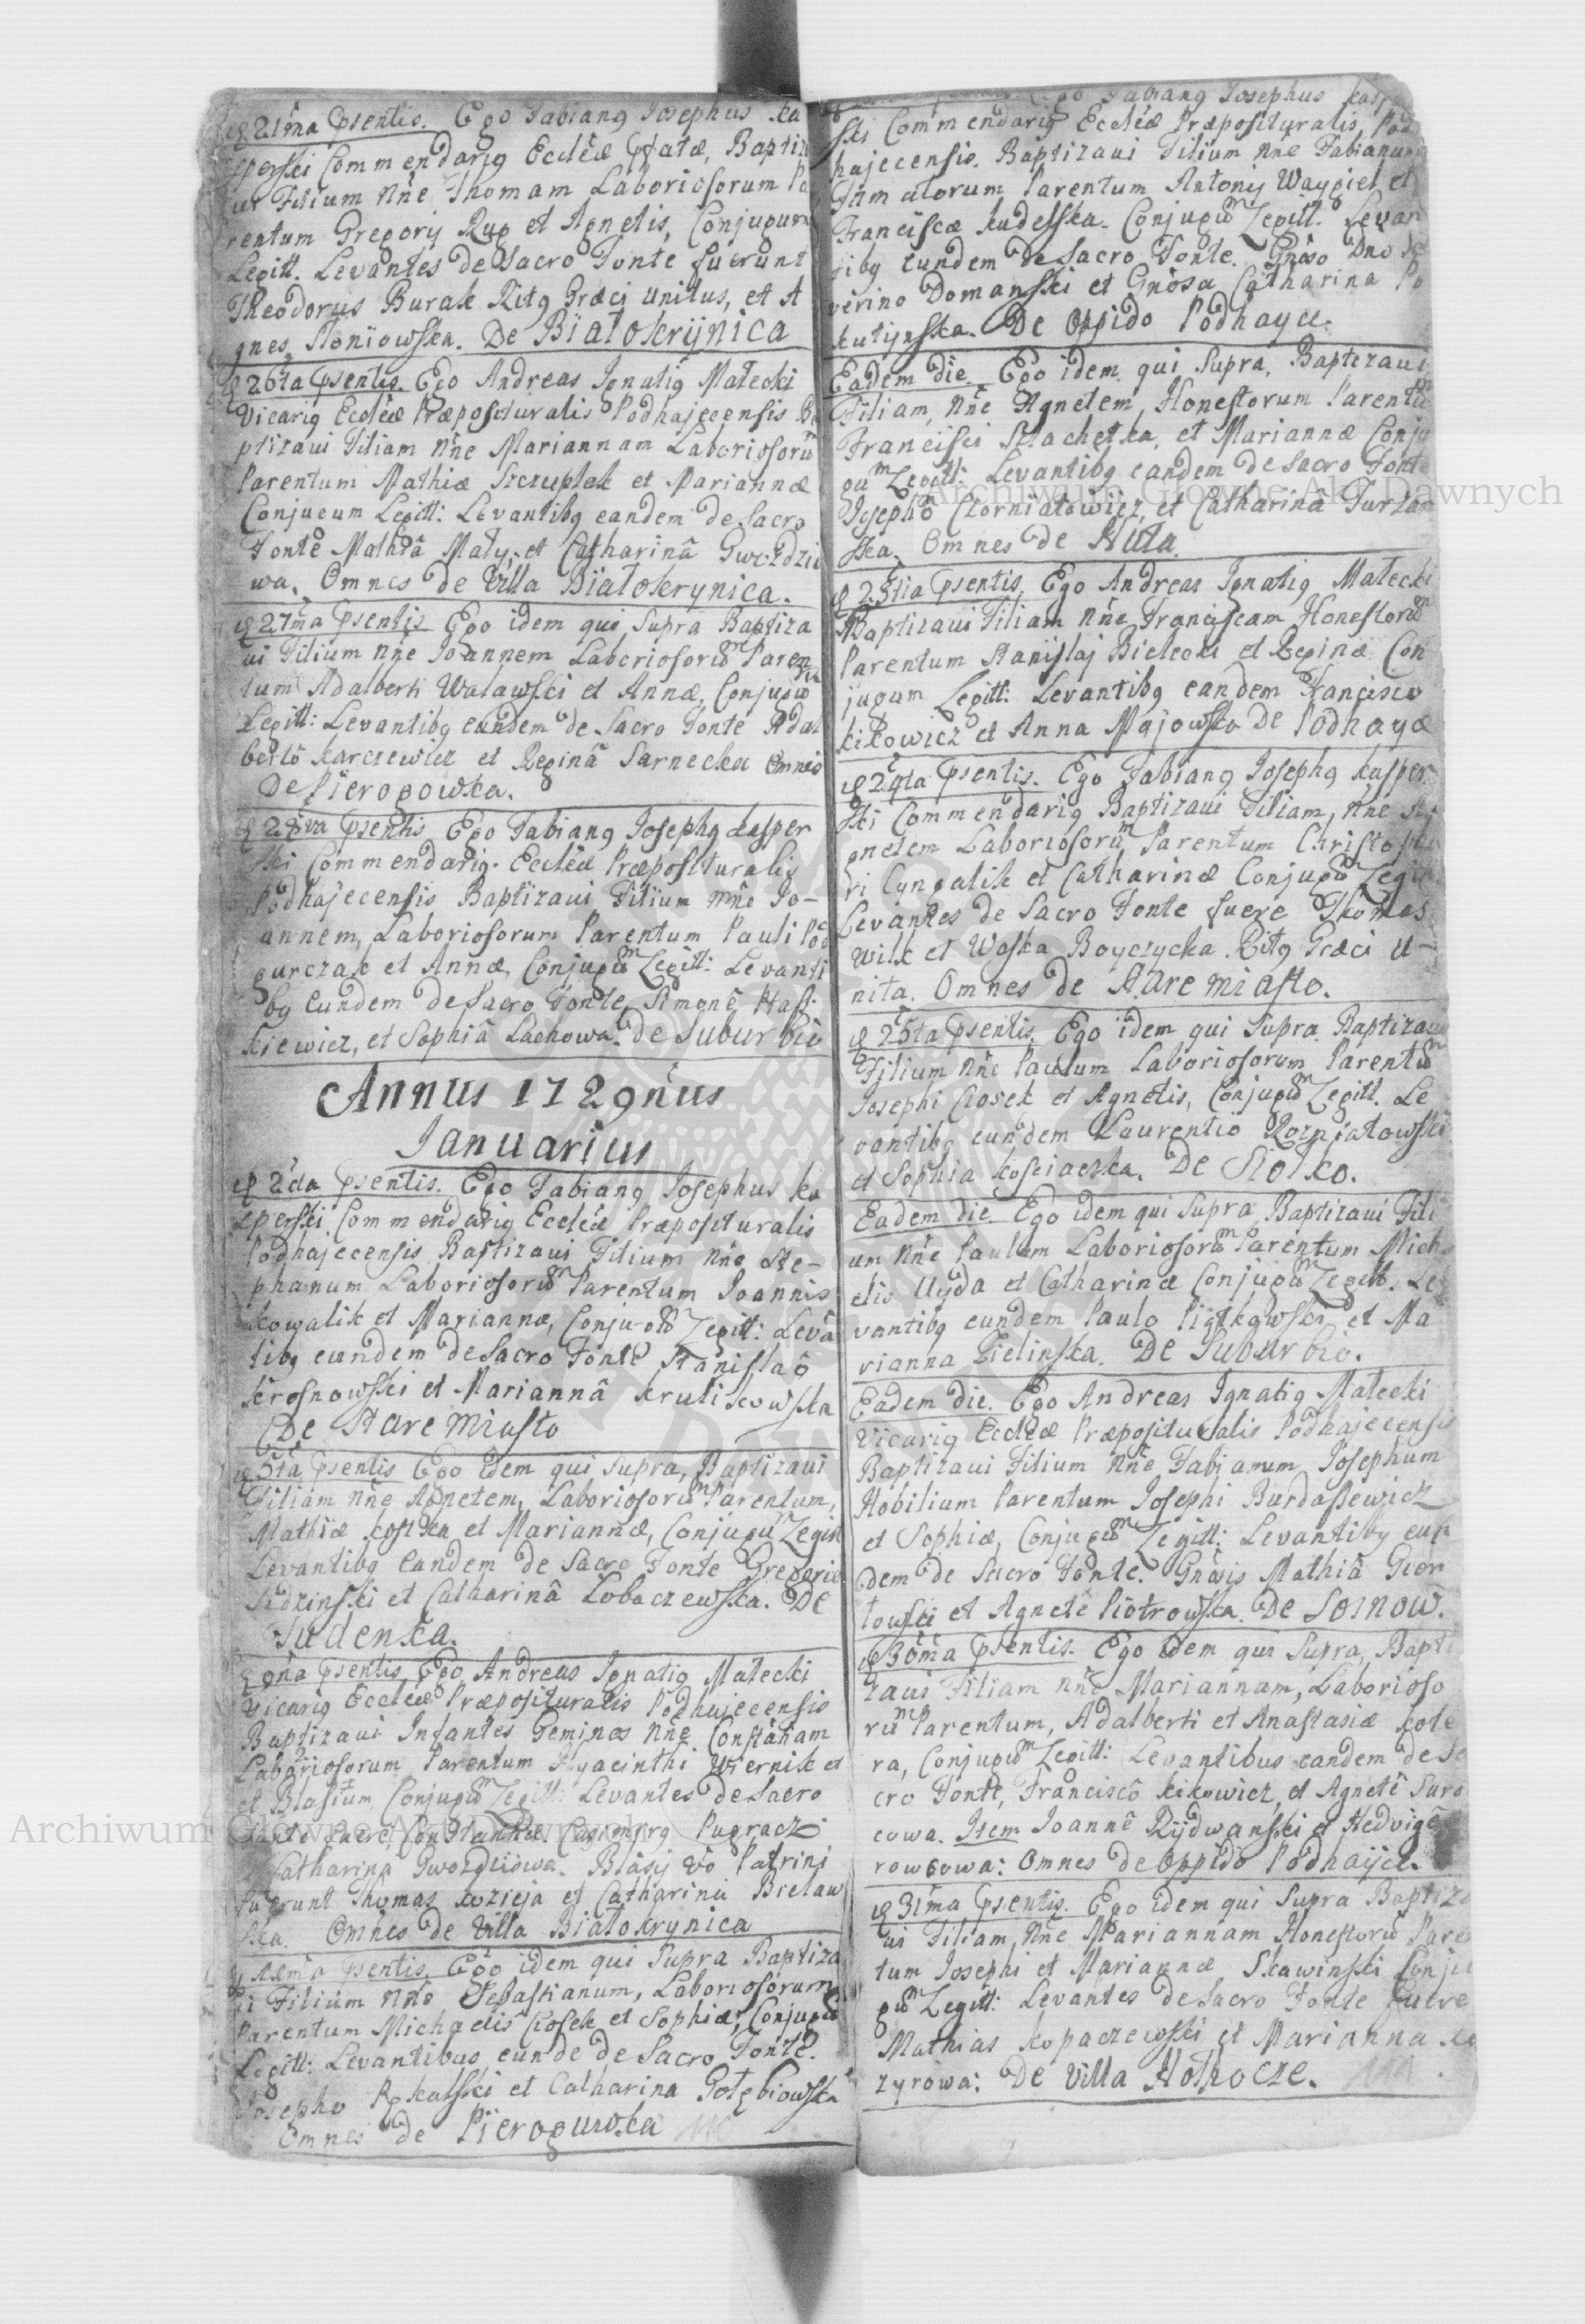 21ma psentis. Ego Fabiang Josephus Ka
sperski Commendarig Ecclēæ pfatæ, Baptiza
ui Filium Nn̄e Thomam Laboriosorum Pa
rentum Gregorij Rug et Agnetis, Conjugum
Legitt. Levantes de Sacro Fonte fuerunt
Theodorus Burak Ritg Græci Unitus, et A
gnes Słoniowska. De Białokrynica
26ta psentis. Ego Andreas Ignatig Małecki
Vicarig Ecclēæ Præposituralis Podhajecensis Ba
ptizaui Filiam Nn̄e Mariannam Laboriosorū
Parentum Mathiæ Szczupłak et Mariannæ
Conjugum Legitt: Levantibg eandem de Sacro
Fonte Mathiâ Mały, et Catharinâ Gwozdzio
wa. Omnes de Villa Białokrynica.
27ma psentis Ego idem qui Supra Baptiza
ui Filium Nn̄e Joannem Laboriosorū Paren
tum Adalberti Waławski et Annæ, Conjugū
Legitt: Levantibg eundem de Sacro Fonte Adal
bertô Karczewicz et Reginâ Sarnecka Omnes
De Pierogowka.
28va psentis Ego Fabiang Josephg Kasper
ski Commendarig Ecclēæ Præposituralis
Podhajecensis Baptizaui Filium Nn̄e Jo-
annem, Laboriosorum Parentum Pauli Pod
gurczak et Annæ, Conjugū Legitt: Levanti
bg Eundem de Sacro Fonte, Simonê Has
kiewicz, et Sophiâ Lachowa. de Suburbio
Annus 1729nus
Januarius
2da psentis. Ego Fabiang Josephus Ka
sperski Commendarig Ecclēæ Præposituralis
Podhajecensis Baptizaui Filium Nn̄e Ste-
phanum Laboriosorū Parentum Joannis
Kowalik et Mariannæ, Conjugū Legitt: Levā
tibg eundem de Sacro Fonte Stanislaô
Krosnowski et Mariannâ Krulikowska
De Stare Miasto
5ta psentis Ego idem qui Supra, Baptizaui
Filiam Nn̄e Agnetem, Laboriosorū Parentum,
Mathiæ Kostka et Mariannæ, Conjugū Legitt
Levantibg Eandem de Sacro Fonte Gregorio
Sidzinski et Catharinâ Lobaczewska. De
Judenka.
9na psentis Ego Andreas Ignatig Małecki
Vicarig Ecclēæ Præposituralis Podhajecensis
Baptizaui Infantes Geminos Nn̄e Constātiam
Laborijosorum Parentum Hyacinthi Wiernik et
et Blasium Conjugū Legitt: Levantes de Sacro
Fonte fuere Constantiæ Casimirg Pugracz
Catharina Gwozdziowa. Blasij vō Patrini
fuerunt Thomas Kozieja et Catharina Bielaw
ska. Omnes de Villa Białokrynica
psentis. Ego idem qui Supra Baptiza
ui Filium Nn̄e Sebastianum, Laboriosorum
Parentum Michaelis Ciosek et Sophiæ, Conjugū
Legitt: Levantibus eunde de Sacro Fonte.
Josepho Rokalski et Catharina Gołębiowska
Omnes de Pierogowka
Ego Fabiang Josephus Kasper
ski Commendarig Ecclēæ Præposituralis Pod
hajecensis. Baptizaui Filium Nn̄e Fabianum
Famatorum Parentum Antonij Waygiel et
Franciscæ Kudelska. Conjugū Legitt. Levan
tibg Eundem de Sacro Fonte. Gnōso Dno Se
verino Domanski et Gnōsa Catharina Po
kutynska. De Oppido Podhayce.
Eadem die. Ego idem qui Supra, Baptizaui
Filiam, Nn̄e Agnetem, Honestorum Parentū
Francisci Szlachetka, et Mariannæ Conju
gū Legitt: Levantibg eandem de Sacro Fonte
Josephô Czorniatowicz, et Catharinâ Turzan
ska. Omnes de Huta.
23tia psentis. Ego Andreas Ignatig Małecki
Baptizaui Filiam Nn̄e Franciscam Honestorū
Parentum Stanislaj Bielecki et Reginæ Con
jugum Legitt: Levantibg eandem Francisco
Kikowicz et Anna Majowska De Podhayce
24ta psentis. Ego Fabiang Josephg Kasper
ski Commendarig Baptizaui Filiam, Nn̄e A
gnetem Laboriosorū Parentum Christopho
ri Cyngalik et Catharinæ Conjugū Legitt.
Levantes de Sacro Fonte fuere Thomas
Wilk et Woska Boyczycka Ritg Græci U-
nita. Omnes de Stare Miasto.
25ta psentis. Ego idem qui Supra Baptizaui
Filium Nn̄e Paulum Laboriosorum Parentū
Josephi Ciosek et Agnetis, Conjugū Legitt. Le
vantibg eundem Laurentio Rozniatowski
et Sophia Kosciaczka. De Siołko.
Eadem die. Ego idem qui Supra Baptizaui Fili
um Nn̄e Paulum Laboriosorū Parentum Micha
elis Uyda et Catharinæ Conjugū Legitt. Le
vantibg eundem Paulo Piątkowski et Ma
rianna Zielinska. De Suburbio.
Eadem die. Ego Andreas Ignatig Małecki
Vicarig Ecclēæ Præposituralis Podhajecensis
Baptizaui Filium Nn̄e Fabianum Josephum
Nobilium Parentum Josephi Burdassewicz
et Sophiæ, Conjugū Legitt: Levantibg eun
dem de Sacro Fonte. Gnōsis Mathiâ Gier
towski et Agnetê Piotrowska. De Sosnow.
30ma psentis. Ego idem qui Supra, Bapti
zaui Filiam Nn̄e Mariannam, Laborioso
rū Parentum, Adalberti et Anastasiæ Kote
ra, Conjugū Legitt: Levantibus eandem de Sa
cro Fonte, Franciscô Kikowicz, et Agnetê Suro
cowa. Item Joannê Rydwanski et Hedvigê
rowcowa: Omnes de Oppido Podhayce.
31ma psentis. Ego idem qui Supra Baptiza
ui Filiam, Nn̄e Mariannam Honestorū Paren
tum Josephi et Mariannæ Skawinski Conju
gū Legitt: Levantes de Sacro Fonte fuere
Mathias Kopaczewski et Marianna Ko
zyrowa: De Villa Hołhocze.
Archiwum Główne Akt Dawnych
Archiwum Główne Akt Dawnych